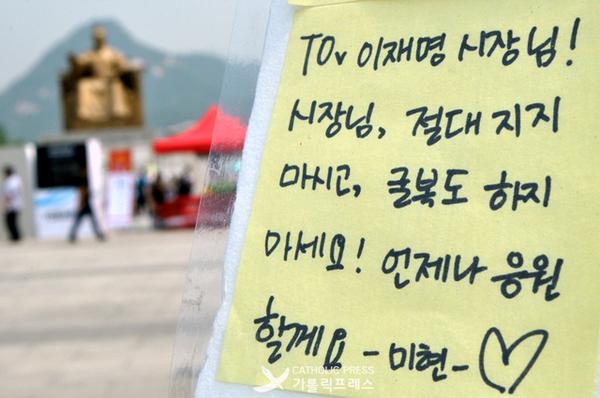 TO. 이재명 시장님!
시장님, 절대 지지
마시고, 굴복도 하지
마세요! 언제나 응원
할게요 -미현- ♡
CATHOLIC PRESS
가톨릭프레스